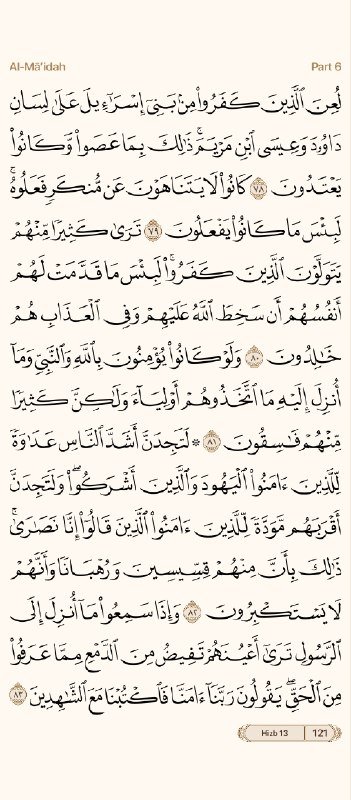 Al-Mā'idah Part 6
لُعِنَ ٱلَّذِينَ كَفَرُوا۟ مِنۢ بَنِىٓ إِسْرَٰٓءِيلَ عَلَىٰ لِسَانِ
دَاوُۥدَ وَعِيسَى ٱبْنِ مَرْيَمَ ۚ ذَٰلِكَ بِمَا عَصَوا۟ وَّكَانُوا۟
يَعْتَدُونَ ٧٨ كَانُوا۟ لَا يَتَنَاهَوْنَ عَن مُّنكَرٍ فَعَلُوهُ ۚ
لَبِئْسَ مَا كَانُوا۟ يَفْعَلُونَ ٧٩ تَرَىٰ كَثِيرًا مِّنْهُمْ
يَتَوَلَّوْنَ ٱلَّذِينَ كَفَرُوا۟ ۚ لَبِئْسَ مَا قَدَّمَتْ لَهُمْ
أَنفُسُهُمْ أَن سَخِطَ ٱللَّهُ عَلَيْهِمْ وَفِى ٱلْعَذَابِ هُمْ
خَٰلِدُونَ ٨٠ وَلَوْ كَانُوا۟ يُؤْمِنُونَ بِٱللَّهِ وَٱلنَّبِىِّ وَمَآ
أُنزِلَ إِلَيْهِ مَا ٱتَّخَذُوهُمْ أَوْلِيَآءَ وَلَٰكِنَّ كَثِيرًا
مِّنْهُمْ فَٰسِقُونَ ٨١ ۞ لَتَجِدَنَّ أَشَدَّ ٱلنَّاسِ عَدَٰوَةً
لِّلَّذِينَ ءَامَنُوا۟ ٱلْيَهُودَ وَٱلَّذِينَ أَشْرَكُوا۟ ۖ وَلَتَجِدَنَّ
أَقْرَبَهُم مَّوَدَّةً لِّلَّذِينَ ءَامَنُوا۟ ٱلَّذِينَ قَالُوٓا۟ إِنَّا نَصَٰرَىٰ ۚ
ذَٰلِكَ بِأَنَّ مِنْهُمْ قِسِّيسِينَ وَرُهْبَانًا وَأَنَّهُمْ
لَا يَسْتَكْبِرُونَ ٨٢ وَإِذَا سَمِعُوا۟ مَآ أُنزِلَ إِلَى
ٱلرَّسُولِ تَرَىٰٓ أَعْيُنَهُمْ تَفِيضُ مِنَ ٱلدَّمْعِ مِمَّا عَرَفُوا۟
مِنَ ٱلْحَقِّ ۖ يَقُولُونَ رَبَّنَآ ءَامَنَّا فَٱكْتُبْنَا مَعَ ٱلشَّٰهِدِينَ ٨٣
Hizb 13 121